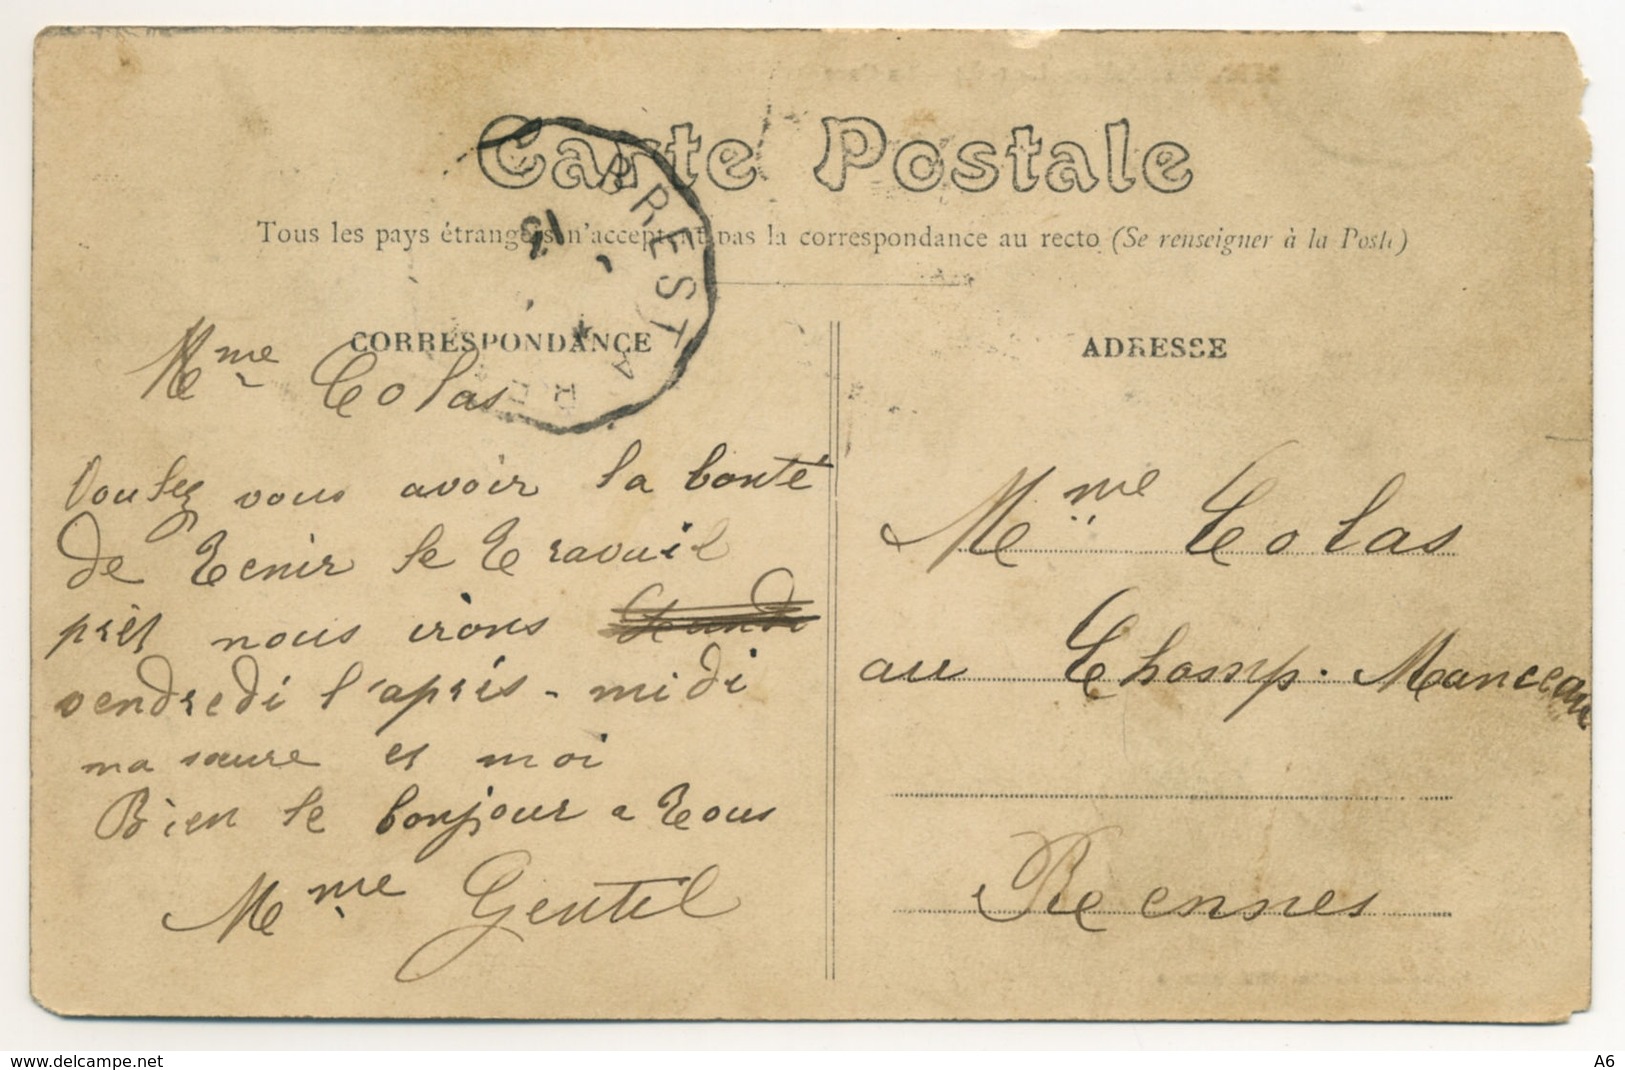 Carte Postale
Tous les pays étrangers n'acceptent pas la correspondance au recto (Se renseigner à la Poste)
CORRESPONDANCE
BREST A RE
13
Mme Colas
Voulez vous avoir la bonté
de tenir le travail
prêt nous irons
vendredi l'après-midi
ma sœure et moi
Bien le bonjour a tous
Mme Gentil
ADRESSE
Mme Colas
au Champ-Manceau
Rennes
www.delcampe.net
A6